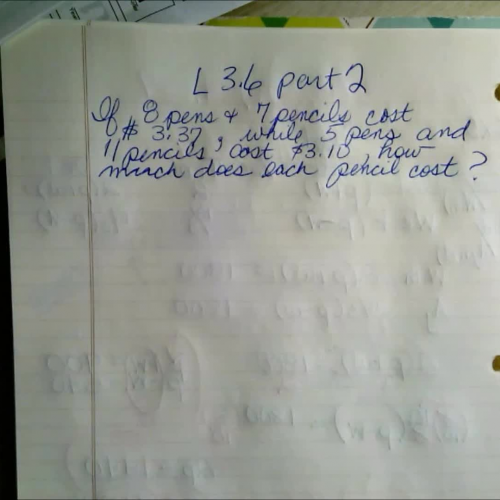 L 3.6 part 2
If 8 pens & 7 pencils cost
$3.37, while 5 pens and
11 pencils cost $3.10, how
much does each pencil cost?